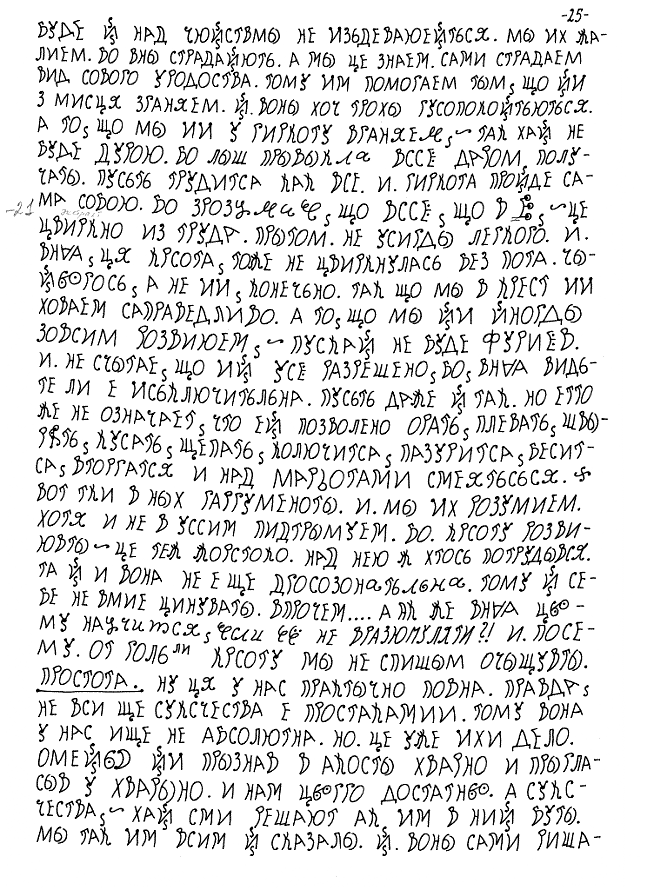 -25-
БУДЕ Й НАД ЧЮЙСТВМЫ НЕ ИЗЬДЕВАЮЕЙТЬСЯ. МЫ ИХ ЖА-
ЛИЕМ. БО ВНЫ СТРАДАЙЮТЬ. А МЫ ЦЕ ЗНАЕМ. САМИ СТРАДАЕМ
ВИД СОБОГО УРОДОСТВА. ТОМУ ИМ ПОМОГАЕМ ТЫМ, ЩО ЙИ
З МИСЦЯ ЗГАНЯЕМ. Й. ВОНЫ ХОЧ ТРОХЫ ГУСОПОКОЙТЬЮТЬСЯ.
А ТО, ЩО МЫ ИИ У ГИРКОТУ ВГАНЯЕМ, ~ ТАК ХАЙ НЕ
БУДЕ ДУРОЮ. БО ЛЫШ ПРЫВЫКЛА ВССЕ ДАРОМ ПОЛУ-
ЧАТЫ. ПУСЬТЬ ТРУДИТСА КАК ВСЕ. И. ГИРКОТА ПРОЙДЕ СА-
МА СОБОЮ. БО ЗРОЗУМИЕ, ЩО ВССЕ, ЩО В ~ ЦЕ
ЦВИРКНО ИЗ ТРУДА. ПРЫТОМ. НЕ УСИГДЫ ЛЕГКОГО. И.
ВНА, ЦЯ КРСОТА, ТОЖЕ НЕ ЦВИРКНУЛАСЬ БЕЗ ПОТА. ЧЫ-
ЙВОГОСЬ, А НЕ ИИ, КОНЕЧЬНО. ТАК ЩО МЫ В КРЕСТ ИИ
ХОВАЕМ САПРАВЕДЛИВО. А ТО, ЩО МЫ ЙИ ЙНОГДЫ
ЗОВСИМ РОЗВИЮЕМ, ~ ПУСКАЙ НЕ БУДЕ ФУРИЕВ.
И. НЕ СЧЫТАЕ, ЩО ИЙ УСЕ РАЗРЕШЕНО, БО, ВНА ВИДЬ-
ТЕ ЛИ Е ИСЬКЛЮЧИТЬЛЬНА. ПУСЬТЬ ДАЖЕ Й ТАК. НО ЕТТО
ЖЕ НЕ ОЗНАЧАЕТ, ЧТО ЕЙ ПОЗВОЛЕНО ОРАТЬ, ПЛЕВАТЬ, ШВЫ-
РЯТЬ, КУСАТЬ, ЩЕПАТЬ, КОЛЮЧИТСА, ПАЗУРИТСА, БЕСИТ-
СА, ВТОРГАТСЯ И НАД МАРЬОТАМИ СМЕЯТЬСЬСЯ.
ВОТ ТКИ В НЫХ ГАРГУМЕНОТЫ. И. МЫ ИХ РОЗУМИЕМ.
ХОТЯ И НЕ В УССИМ ПИДТРЫМУЕМ. БО. КРСОТУ РОЗВИ-
ЮВТЫ ~ ЦЕ ТЕЖ ЖОРСТОКО. НАД НЕЮ Ж ХТОСЬ ПОТРУДЫВСЯ.
ТА Й И ВОНА НЕ Е ЩЕ ДГОСОЗОНАТЬЛЬНА. ТОМУ Й СЕ-
БЕ НЕ ВМИЕ ЦИНУВАТЫ. ВПРОЧЕМ.... А ЯК ЖЕ ВНА ЦЬО-
МУ НАУЧИТСЯ, ЕСЛИ ЕЕ НЕ ВРАЗЮМУЛЯТИ?! И. ПОСЕ-
МУ. ОТ ГОЛЬЛИ КРСОТУ МЫ НЕ СПИШЫМ ОЧЫЩУВТЫ.
ПРОСТОТА. НУ ЦЯ У НАС ПРАКТЫЧНО ПОВНА. ПРАВДА,
НЕ ВСИ ЩЕ СУКСЧЕСТВА Е ПРОСТАКАМИИ. ТОМУ ВОНА
У НАС ИЩЕ НЕ АБСОЛЮТНА. НО. ЦЕ УЖЕ ИХИ ДЕЛО.
ОМЕЙЬВ ЙИ ПРЫЗНАВ В АКОСТЫ ХВАРНО И ПРЫГЛА-
СЫВ У ХВАРЫНО. И НАМ ЦЬОГГО ДОСТАТНЬО. А СУКС-
ЧЕСТВА, ~ ХАЙ СМИ РЕШАЮТ АК ИМ В НИЙ БУТЫ.
МЫ ТАК ИМ ВСИМ Й СКАЗАЛЫ. Й. ВОНЫ САМИ РИША-